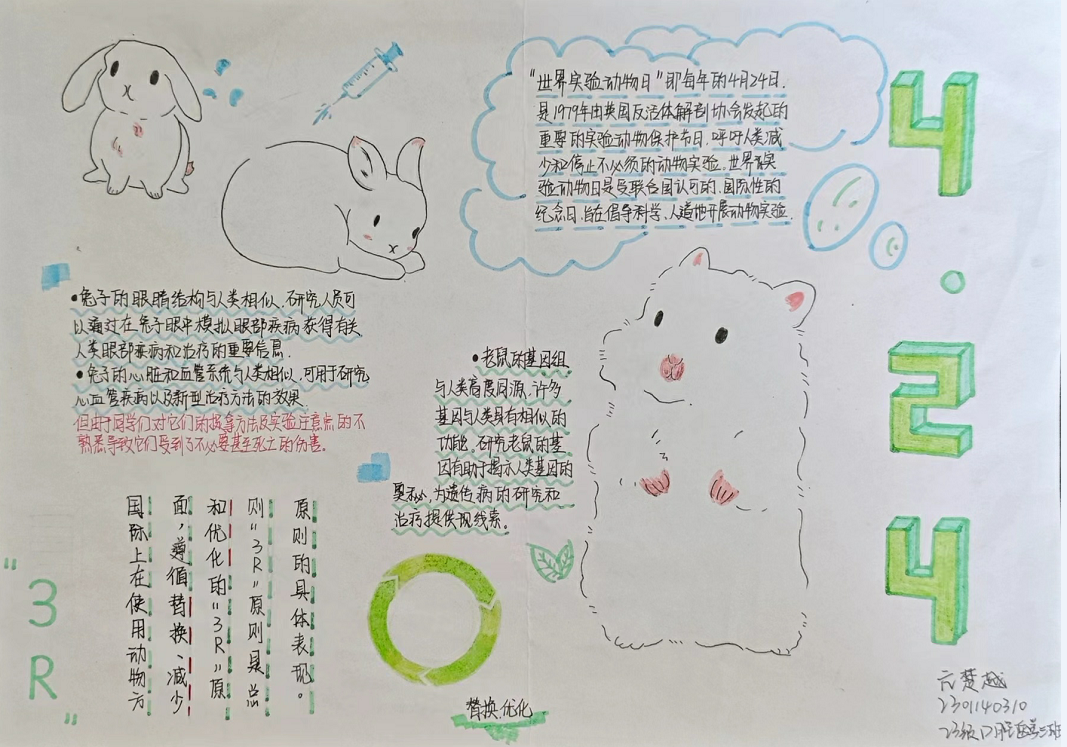 “世界实验动物日”即每年的4月24日.
是1979年由英国反活体解剖协会发起的
重要的实验动物保护节日.呼吁人类减
少和停止不必须的动物实验.世界实
验动物日是受联合国认可的.国际性的
纪念日.旨在倡导科学、人道地开展动物实验.
4.24
•兔子的眼睛结构与人类相似.研究人员可
以通过在兔子眼中模拟眼部疾病获得有关
人类眼部疾病和治疗的重要信息.
•兔子的心脏和血管系统与人类相似.可用于研究
心血管疾病以及新型治疗方法的效果.
但由于同学们对它们的抓拿方法及实验注意点的不
熟悉导致它们受到了不必要甚至死亡的伤害。
•老鼠的基因组
与人类高度同源.许多
基因与人类具有相似的
功能.研究老鼠的基
因有助于揭示人类基因的
奥秘,为遗传病的研究和
治疗提供线索。
“3R”
国际上在使用动物方
面,遵循替换、减少
和优化的“3R”原
则“3R”原则是
原则的具体表现。
替换.优化
楚越
2301140310
23级口腔医学二班